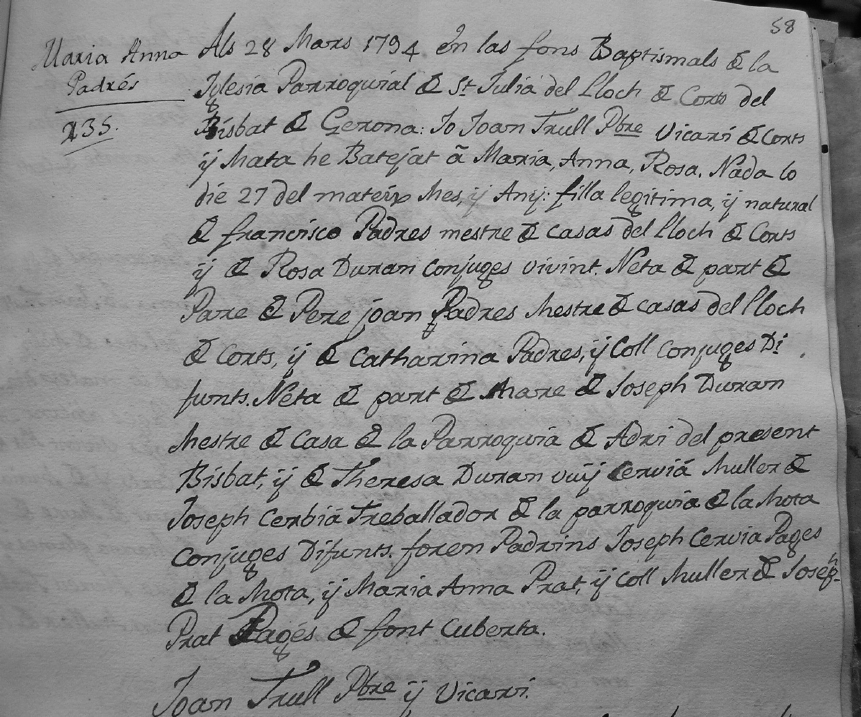 58
Maria Anna
Padrés
235.
Als 28 Mars 1794 En las fons Baptismals de la
Iglesia Parroquial de St. Juliá del Lloch de Corts del
Bisbat de Gerona: Jo Joan Trull Pbre Vicari de Corts
ÿ Mata he Batejat á Maria, Anna, Rosa. Nada lo
die 27 del mateix Mes, ÿ Anÿ: filla legitima, ÿ natural
de francisco Padres mestre de casas del Lloch de Corts
ÿ de Rosa Duran conjuges vivint. Neta de part de
Pare de Pere joan Padres Mestre de casas del lloch
de Corts, ÿ de Catharina Padres, ÿ Coll Conjuges Di
funts. Neta de part de Mare de Joseph Duran
Mestre de Casa de la Parroquia de Adri del present
Bisbat, ÿ de Theresa Duran vuÿ Cerviá Muller de
Joseph Cerbiá Treballador de la parroquia de la Mota
Conjuges Difunts. foren Padrins Joseph Cervia Pages
de la Mota, ÿ Maria Anna Prat, ÿ Coll Muller de Joseph
Prat Pagés de font Cuberta.
Joan Trull Pbre ÿ Vicari.